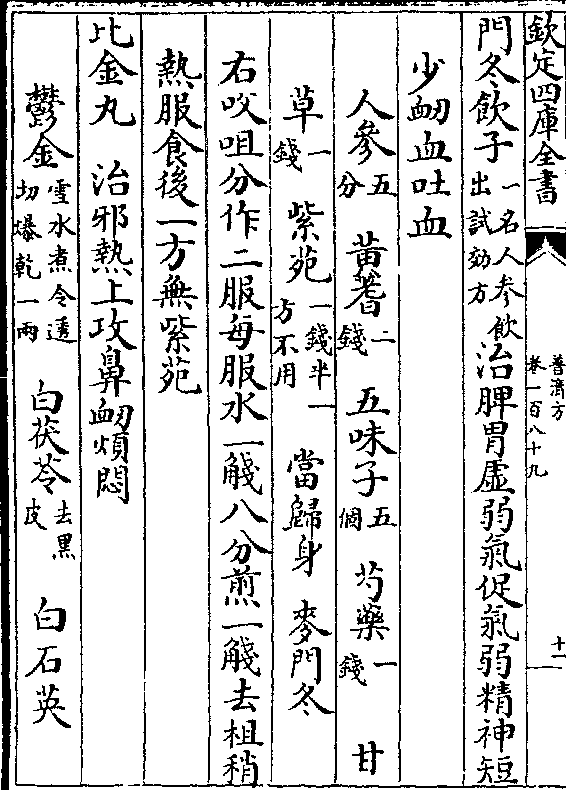 欽定四庫全書
普濟方
卷一百八十九
十一
門冬飲子一名人參飲出試効方治脾胃虛弱氣促氣弱精神短
少衂血吐血
人參五分 黃蓍二錢 五味子五個 芍藥一錢 甘
草一錢 紫苑一錢半一方不用 當歸身 麥門冬
右㕮咀分作二服每服水一觥八分煎一觥去柤稍
熱服食後一方無紫苑
比金丸 治邪熱上攻鼻衂煩悶
鬱金雪水煮令透切爆乾一兩 白茯苓去黑皮 白石英